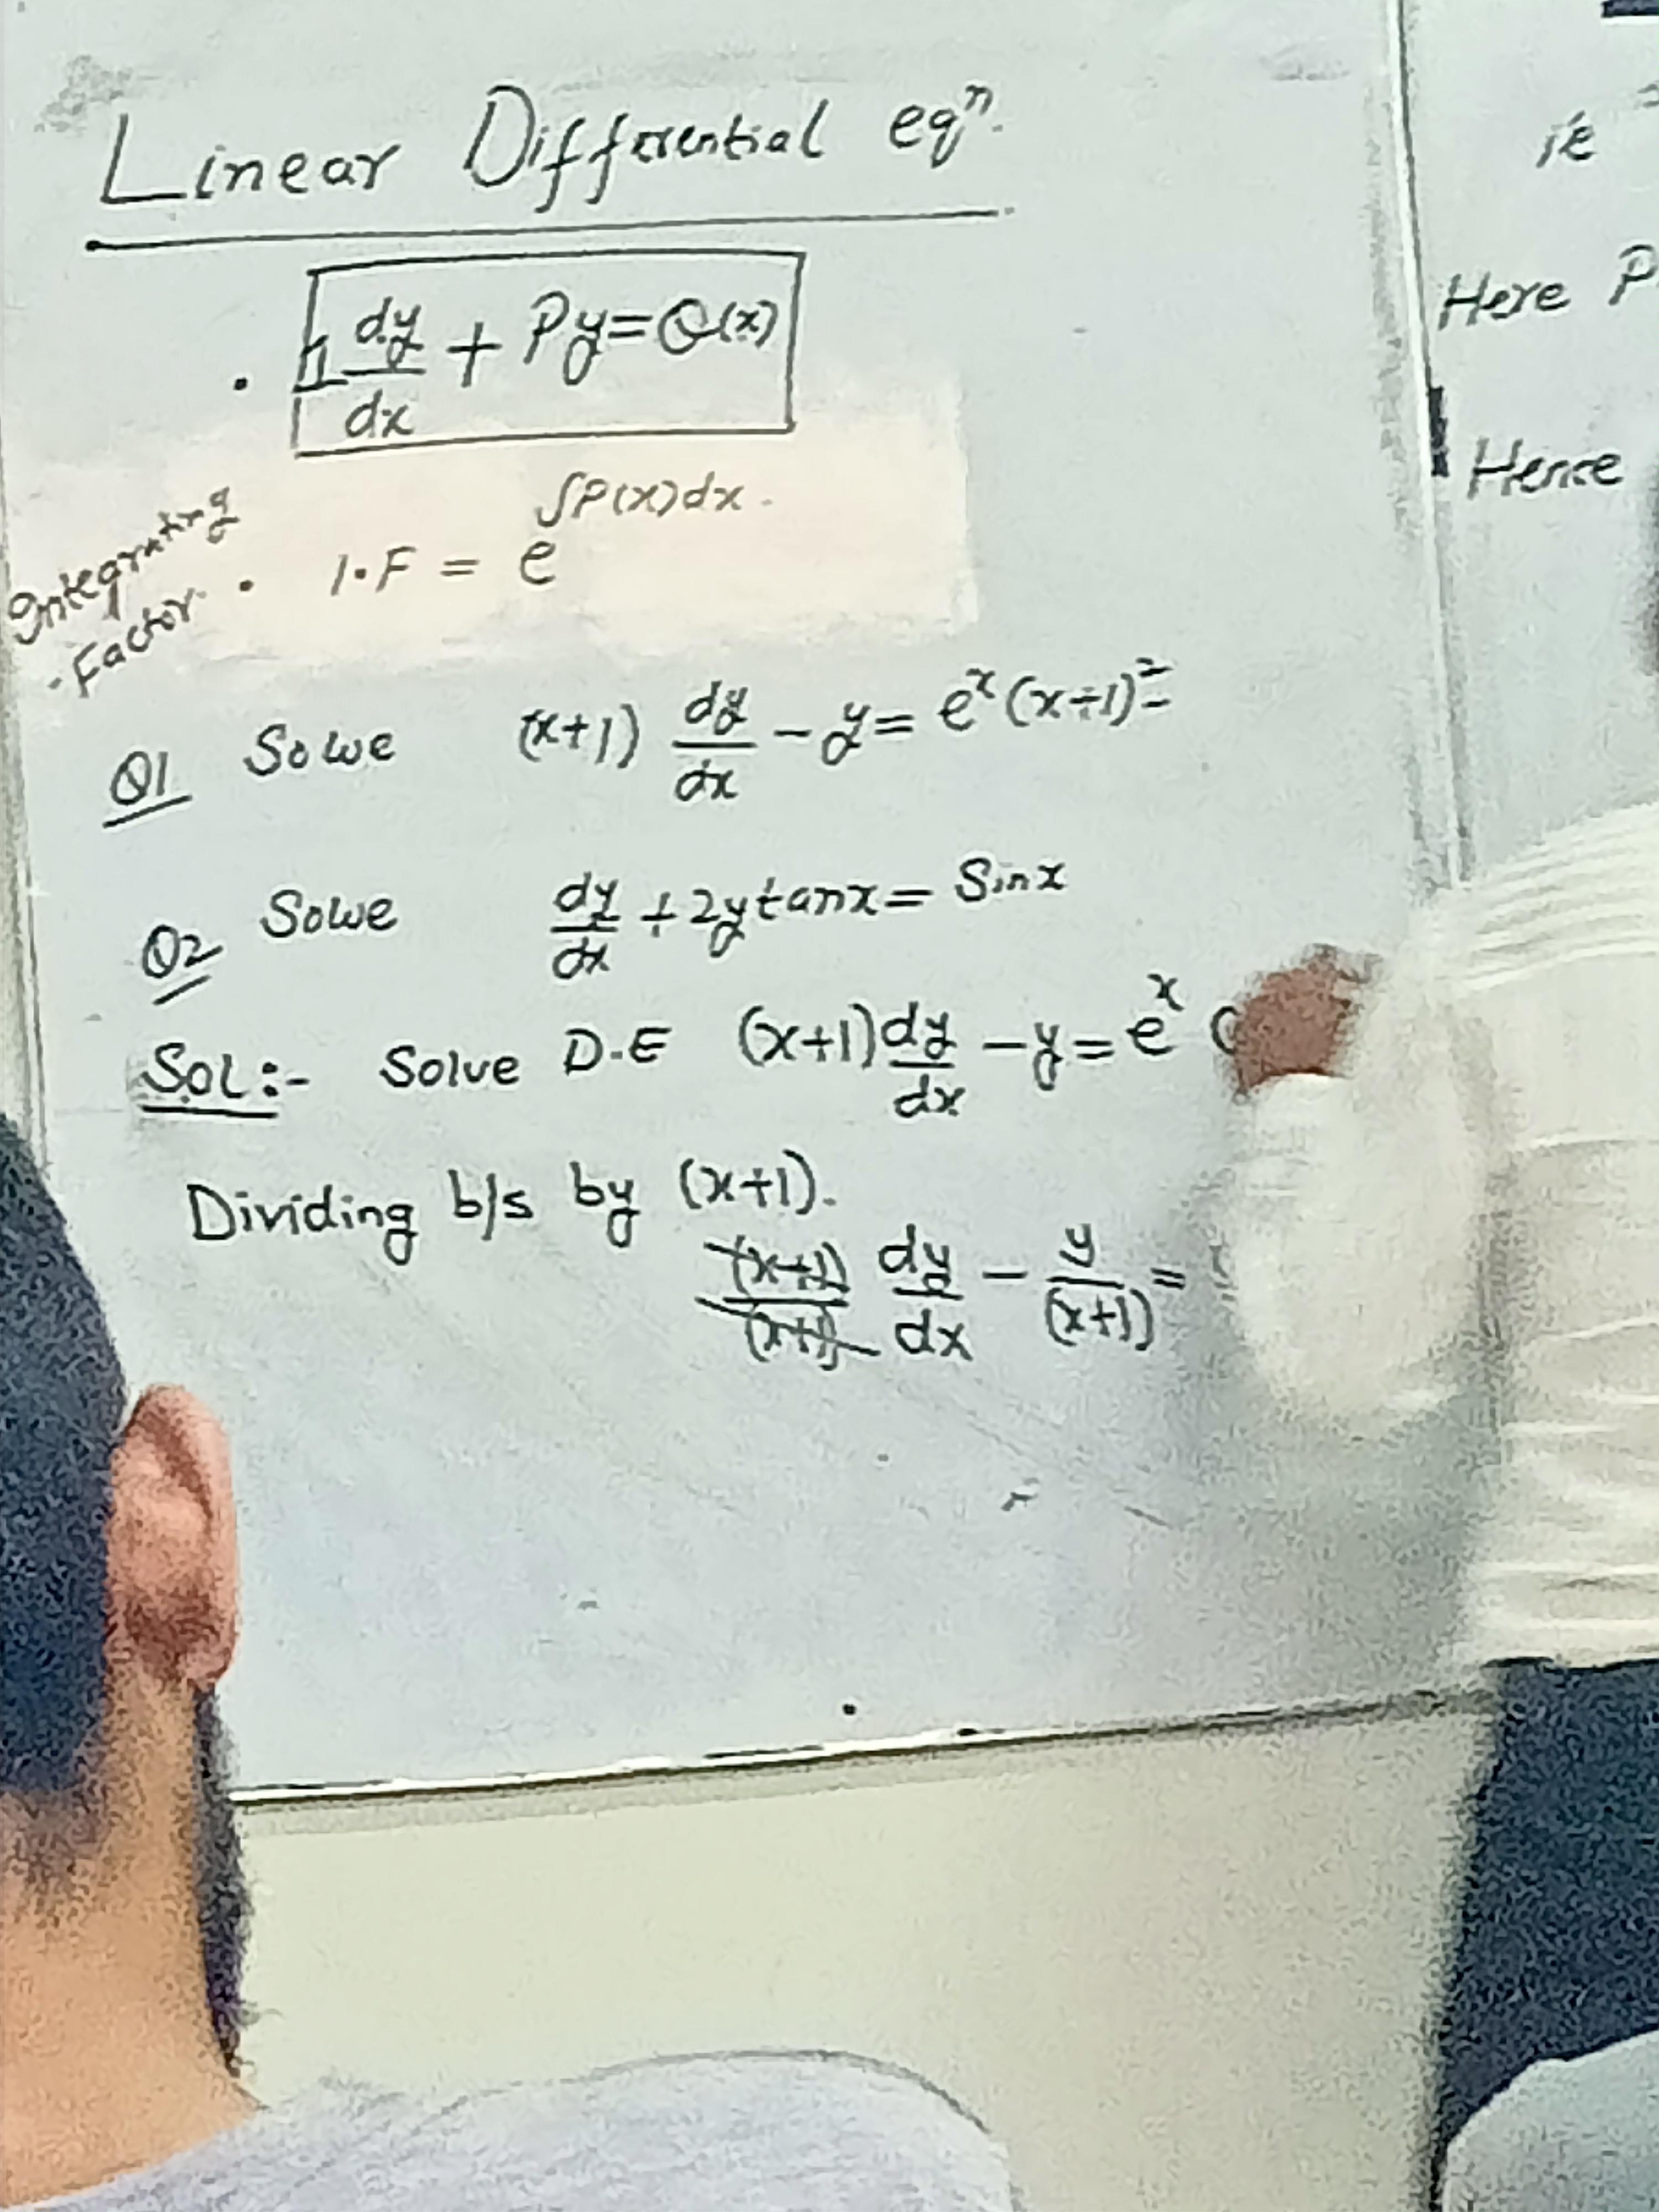 Linear Differential eqⁿ.
· 1 dy/dx + Py = Q(x)
Integrating Factor · I.F = e^∫P(x)dx.
Q1 Solve (x+1) dy/dx - y = e^x (x+1)²
Q2 Solve dy/dx + 2y tanx = Sinx
Sol:- Solve D.E (x+1) dy/dx - y = e^x (
Dividing b/s by (x+1).
(x+1)/(x+1) dy/dx - y/(x+1) =
ie
Here P
Hence